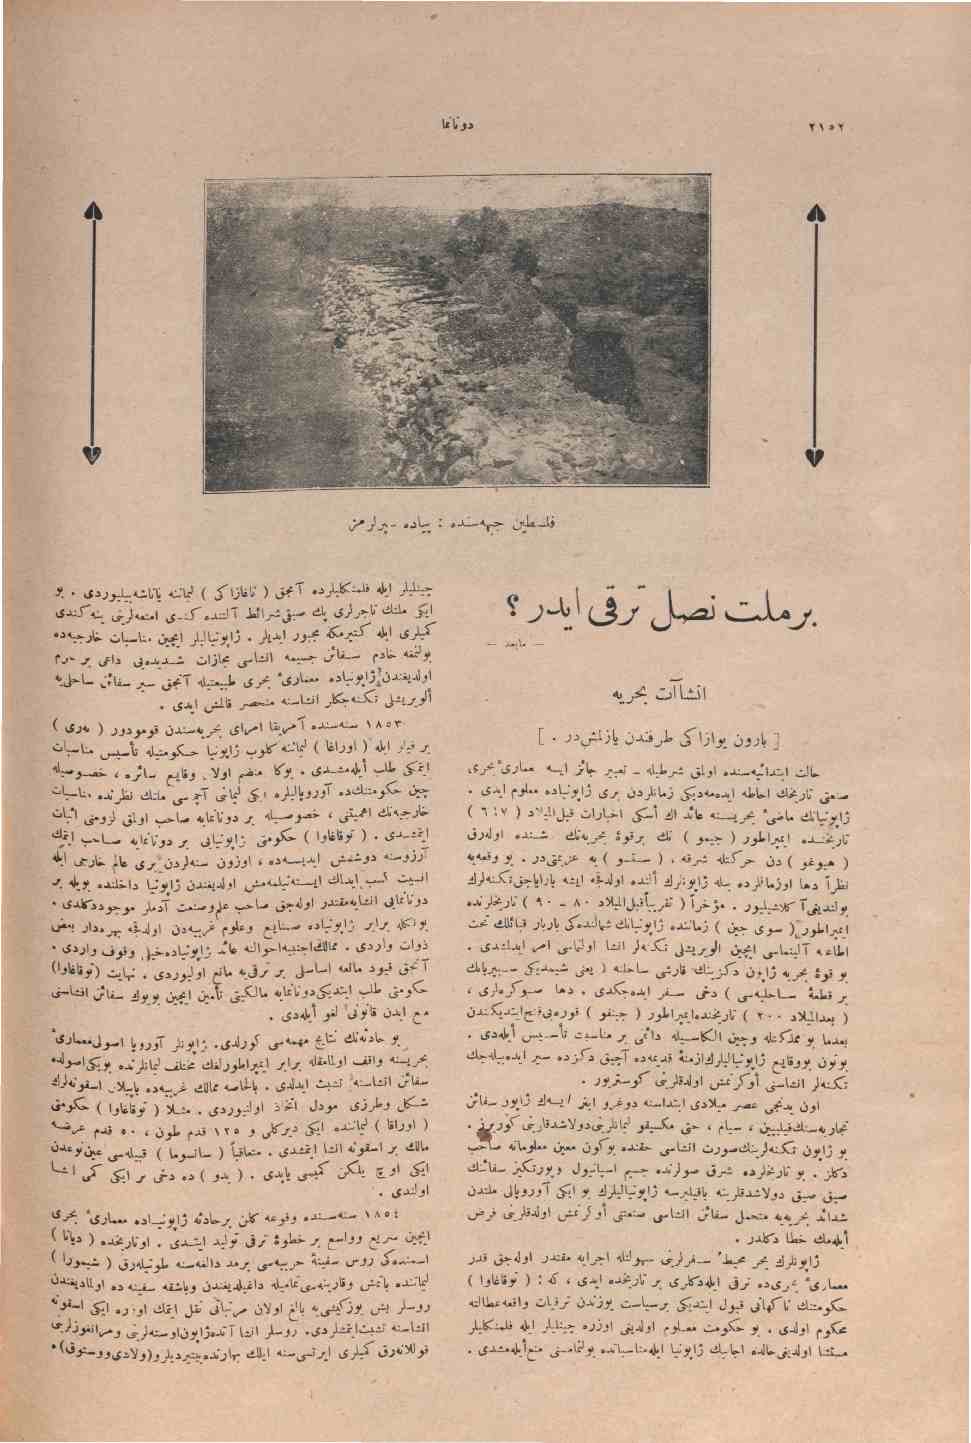 ٢١٥٢
دونانما
فلسطین جبهه‌سنده : پیاده سپرلرمز
بر ملت نصل ترقی ایدر ؟
— مابعد —
انشاآت بحریه
[ بارون یوازاکی طرفندن یازلمش‌در . ]
حالت ابتدائیه‌سنده اولمق شرطیله ـ تعبیر جائز ایسه معماریٔ بحری
صنعتی تاریخك احاطه ایده‌مه‌دیکی زمانلردن بری ژاپونیاده معلوم ایدی .
ژاپونیانك ماضیٔ بحریسنه عائد اك أسکی اخبارات قبل‌المیلاد ( ٦٦٧ )
تاریخنده ایمپراطور ( جیمو ) نك بر قوهٔ بحریه‌نك باشنده اوله‌رق
( هیوغو ) دن حرکتله شرقه ، ( ستسو ) یه عزیمتی‌در . بو وقعه‌یه
نظراً دها اوزمانلرده بیله ژاپونلرك ألنده اولدقجه ایشه یارایاجق تکنه‌لرك
بولندیغی آکلاشیلیور . مؤخراً ( تقریباً قبل‌المیلاد ٨٠ ـ ٩٠ ) تاریخلرنده
ایمپراطور ( سوی جین ) زماننده ژاپونیانك شمالنده‌کی باربار قبائلك تحت
اطاعه آلینماسی ایچین الویریشلی تکنه‌لر انشا اولنماسی امر ایدلشدی .
بو قوهٔ بحریه ژاپون دکزینك قارشی ساحلنه ( یعنی شیمدیکی سیبریانك
بر قطعهٔ ساحلیه‌سی ) دخی سفر ایده‌جکدی . دها صوکره‌لری ،
( بعدالمیلاد ٢٠٠ ) تاریخنده ایمپراطور ( جینغو ) قوره‌یی فتح ایتدیکندن
بعدما بو مملکتله و چین الکاسیله دائمی بر مناسبت تأسیس أیله‌دی .
بوتون بو وقایع ژاپونیالیلرك ازمنهٔ قدیمه‌ده آچیق دکزده سیر ایده‌بیله‌جك
تکنه‌لر انشاسنی أوکرنمش اولدقلرینی کوستریور .
اون یدنجی عصر میلادی ابتداسنه دوغرو ایفر ایسه‌ك ژاپون سفائن
تجاریه‌سنك فیلیپین ، سیام ، حتی مکسیقو لیمانلرینی دولاشدقلرینی کوررز .
بو ژاپون تکنه‌لرینك صورت انشاسی حقنده بوکون معین معلوماته صاحب
دکلز . بو تاریخلرده شرق صولرنده جسیم اسپانیول و پورتکیز سفائنك
صیق صیق دولاشدقلرینه باقیلیرسه ژاپونیالیلرك بو ایکی آوروپالی ملتدن
شدائد بحریه‌یه متحمل سفائن انشاسی صنعتنی أوکرنمش اولدقلرینی فرض
أیله‌مك خطا دکلدر .
ژاپونلرك بحر محیط سفرلرینی سهولتله اجرایه مقتدر اوله‌جق قدر
معماریٔ بحری‌ده ترقی ایله‌دکلری بر تاریخده ایدی ، که : ( توقاغاوا )
حکومتنك ناکهانی قبول ایتدیکی بر سیاست یوزندن ترقیات واقعه عطالته
محکوم اولدی . بو حکومت معلوم اولدیغی اوزره چینلیلر ایله فلمنکلیلر
مستثنا اولدیغی حالده اجانبك ژاپونیا ایله مناسباتده بولنمامسنی منع أیله‌مشدی .
چینلیلر ایله فلمنکلیلرده آنجق ( ناغازاکی ) لیماننه یاناشه‌بیلیوردی . بو
ایکی ملتك تاجرلری پك صیقی شرائط آلتنده کندی امتعه‌لرینی ینه کندی
کمیلری ایله کتیرمکه مجبور ایدیلر . ژاپونیالیلر ایچین مناسبات خارجیه‌ده
بولنمغه خادم سفائن جسیمه انشاسی مجازات شدیده‌یی داعی بر جرم
اولدیغندن ژاپونیاده معماریٔ بحری طبیعتیله آنجق سیر سفائن ساحلیه
ألویریشلی تکنه‌جکلر انشاسنه منحصر قالمش ایدی .
١٨٥٣ سنه‌سنده آمریقا امرای بحریه‌سندن قومودور ( پەری )
بر فیلو ایله ( اوراغا ) لیماننه کلوب ژاپونیا حکومتیله تأسیس مناسبات
ایتمکی طلب أیله‌مشدی . بوکا منضم اولان وقایع سائره ، خصوصیله
چین حکومتنك‌ده آوروپالیلره ایکی لیمانی آچمسی ملتك نظرنده مناسبات
خارجیه‌نك اهمیتنی ، خصوصیله بر دونانمایه صاحب اولمق لزومنی اثبات
ایتمشدی . ( توقاغاوا ) حکومتی ژاپونیایی بر دونانمایه صاحب ایتمك
آرزوسنه دوشمش ایدیسه‌ده ، اوزون سنه‌لردن بری عالم خارجی ایله
انسیت کسب ایتمك ایسته‌نیله‌مه‌مش اولدیغندن ژاپونیا داخلنده بویله بر
دونانمایی انشایه مقتدر اوله‌جق صاحب علم و صنعت آدملر موجود دکلدی .
بونکله برابر ژاپونیاده صنایع و علوم غربیه‌دن اولدقجه بهره‌دار بعض
ذوات واردی . ممالك اجنبیه احوالنه عائد ژاپونیاده خیلی وقوف واردی .
آنجق قیود مالعه اساسلی بر ترقی‌یه مانع اولیوردی . نهایت ( توقاغاوا )
حکومتی طلب ایتدیکی دونانمایه مالکیتی تأمین ایچین بویوك سفائن انشاسنی
منع ایدن قانونی لغو أیله‌دی .
بو حادثه‌نك نتایج مهمه‌سی کورلدی. ژاپونلر آوروپا اصولی معماریٔ
بحریسنه واقف اولمامقله برابر ایمپراطورلغك مختلف لیمانلرنده بویکی اصولده
سفائن انشاسنه تشبث ایدلدی . بالخاصه ممالك غربیه‌ده یاپیلان اسقونه‌لرك
شکل و طرزی مودل اتخاذ اولنیوردی . مثلا ( توقاغاوا ) حکومتی
( اوراقا ) لیماننده ایکی دیرکلی و ١٢٥ قدم طول ، ٥٠ قدم عرضه
مالك بر اسقونه انشا ایتمشدی . متعاقباً ( ساتسوما ) قبیله‌سی عین نوعدن
ایکی اوچ یلکن کمیسی یاپدی . ( یدو ) ده دخی بر ایکی کمی انشا
اولندی .
١٨٥٤ سنه‌سنده وقوعه کلن بر حادثه ژاپونیاده معماریٔ بحری
ایچین سریع و واسع بر خطوهٔ ترقی تولید ایتدی . او تاریخده ( دیانا )
اسمنده‌کی روس سفینهٔ حربیه‌سی بر مد دالغه‌سنه طوتیله‌رق ( شیمورا )
لیماننده باتمش و قارینه‌سی تمامیله داغیلدیغندن و باشقه سفینه ده اولمادیغندن
روسلر بش یوز کیشی‌یه بالغ اولان مرتباتی نقل ایتمك اوزره ایکی اسقونه
انشاسنه تشبث ایتمشلردی . روسلر انشا آنده ژاپون اوسته‌لرینی و مرانغوزلرینی
قوللانه‌رق کمیلری ایرتسی سنه ایلك بهارنده بیتیردیلر و ( ولادی ووستوق ) .